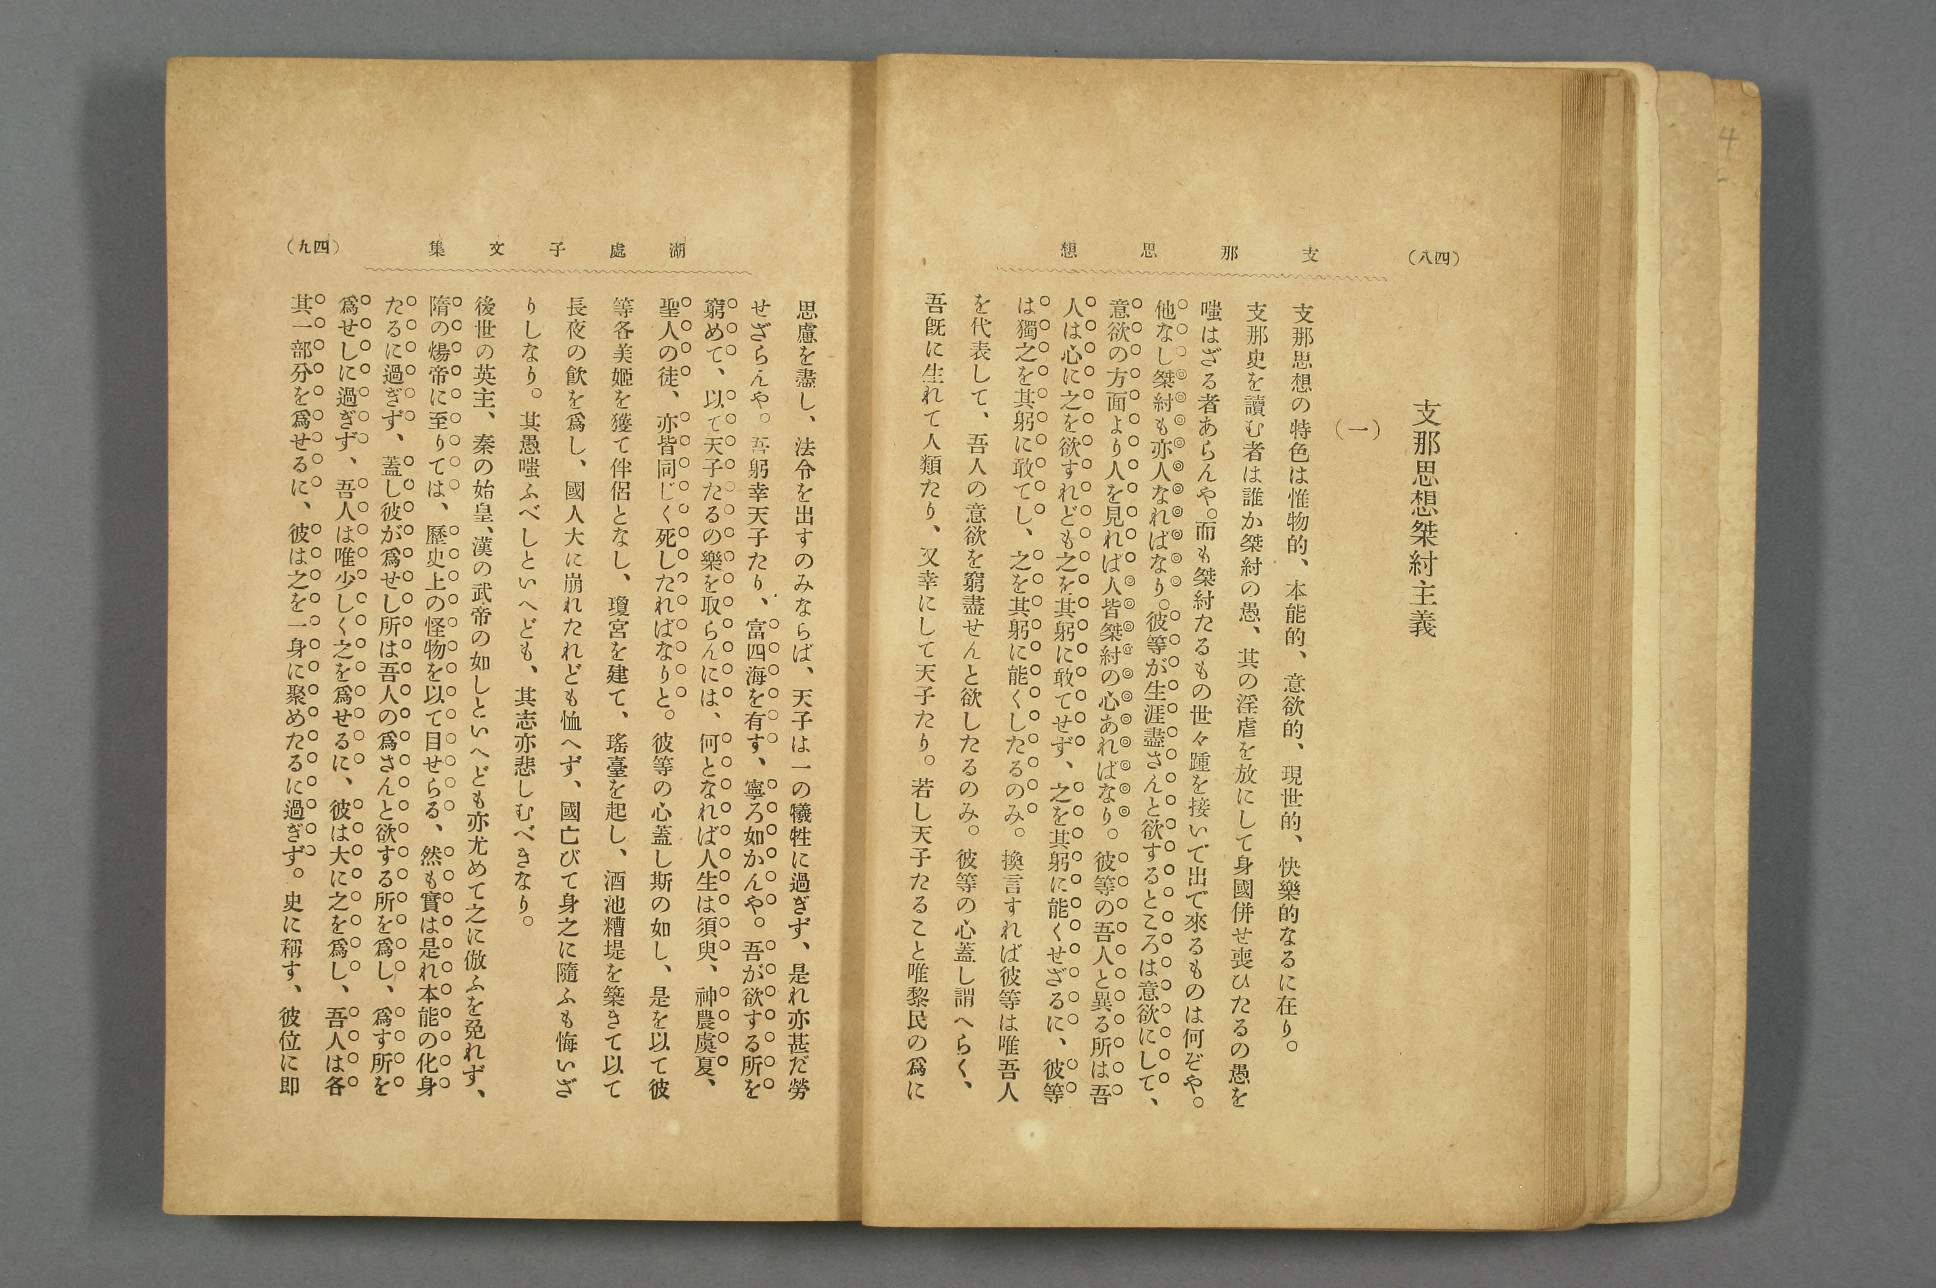 (四八)
支那思想
支那思想桀紂主義
(一)
支那思想の特色は惟物的、本能的、意欲的、現世的、快樂的なるに在り。
支那史を讀む者は誰か桀紂の愚、其の淫虐を放にして身國併せ喪ひたるの愚を
嗤はざる者あらんや。而も桀紂たるもの世々踵を接いで出で來るものは何ぞや。
他なし桀紂も亦人なればなり。彼等が生涯盡さんと欲するところは意欲にして、
意欲の方面より人を見れば人皆桀紂の心あればなり。彼等の吾人と異る所は吾
人は心に之を欲すれども之を其躬に敢てせず、之を其躬に能くせざるに、彼等
は獨之を其躬に敢てし、之を其躬に能くしたるのみ。換言すれば彼等は唯吾人
を代表して、吾人の意欲を窮盡せんと欲したるのみ。彼等の心蓋し謂へらく、
吾既に生れて人類たり、又幸にして天子たり。若し天子たること唯黎民の爲に
湖處子文集
(四九)
思慮を盡し、法令を出すのみならば、天子は一の犧牲に過ぎず、是れ亦甚だ勞
せざらんや。吾躬幸天子たり、富四海を有す、寧ろ如かんや。吾が欲する所を
窮めて、以て天子たるの樂を取らんには、何となれば人生は須臾、神農虞夏、
聖人の徒、亦皆同じく死したればなりと。彼等の心蓋し斯の如し、是を以て彼
等各美姬を獲て伴侶となし、瓊宮を建て、瑤臺を起し、酒池糟堤を築きて以て
長夜の飮を爲し、國人大に崩れたれども恤へず、國亡びて身之に隨ふも悔いざ
りしなり。其愚嗤ふべしといへども、其志亦悲しむべきなり。
後世の英主、秦の始皇、漢の武帝の如しといへども亦尤めて之に倣ふを免れず、
隋の煬帝に至りては、歷史上の怪物を以て目せらる、然も實は是れ本能の化身
たるに過ぎず、蓋し彼が爲せし所は吾人の爲さんと欲する所を爲し、爲す所を
爲せしに過ぎず、吾人は唯少しく之を爲せるに、彼は大に之を爲し、吾人は各
其一部分を爲せるに、彼は之を一身に聚めたるに過ぎず。史に稱す、彼位に即